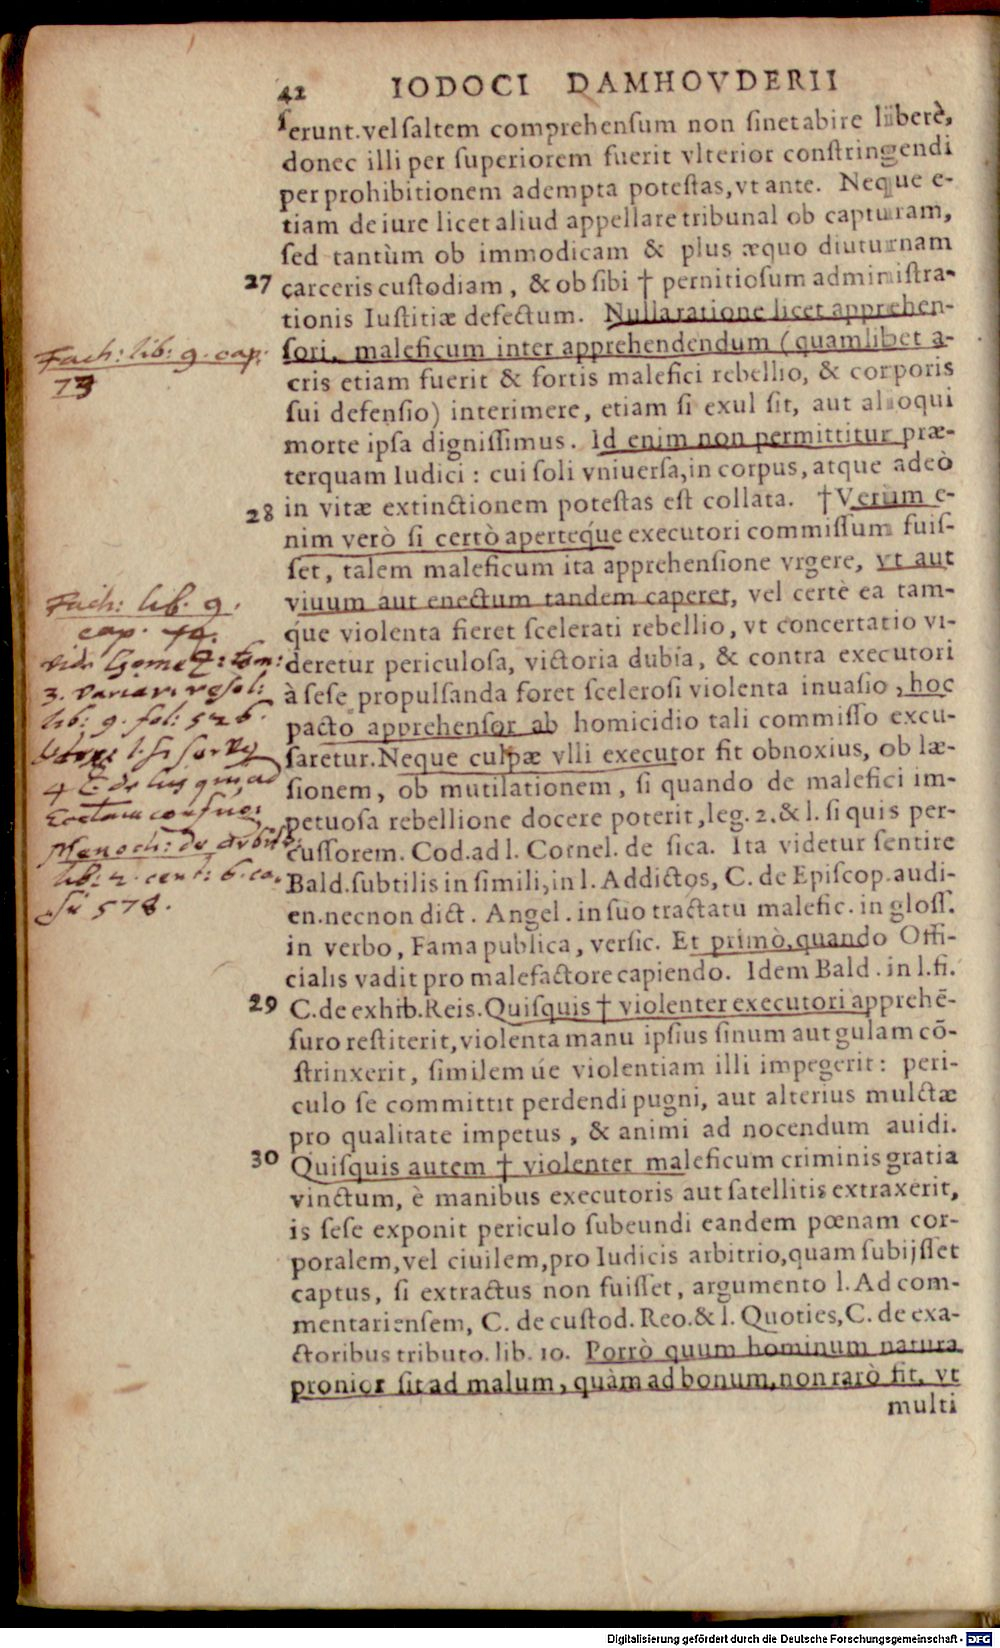 42 IODOCI DAMHOVDERII
ſerunt. vel ſaltem comprehenſum non ſinet abire liberè,
donec illi per ſuperiorem fuerit vlterior conſtringendi
per prohibitionem adempta poteſtas, vt ante. Neque e-
tiam de iure licet aliud appellare tribunal ob capturam,
ſed tantùm ob immodicam & plus æquo diuturnam
27 carceris cuſtodiam, & ob ſibi † pernitioſum adminiſtra-
tionis Iuſtitiæ defectum. Nulla ratione licet apprehen-
Fach: lib: 9. cap:
ſori, maleficum inter apprehendendum (quamlibet a-
73
cris etiam fuerit & fortis malefici rebellio, & corporis
ſui defenſio) interimere, etiam ſi exul ſit, aut alioqui
morte ipſa digniſſimus. Id enim non permittitur præ-
terquam Iudici: cui ſoli vniuerſa, in corpus, atque adeò
28 in vitæ extinctionem poteſtas eſt collata. † Verùm e-
nim verò ſi certò apertéque executori commiſſum fuiſ-
ſet, talem maleficum ita apprehenſione vrgere, vt aut
Fach: lib. 9.
viuum aut enectum tandem caperet, vel certè ea tam-
cap.
q́ue violenta fieret ſcelerati rebellio, vt concertatio vi-
vide Gomez: tom:
deretur periculoſa, victoria dubia, & contra executori
3. variar: resol:
à ſeſe propulſanda foret ſceleroſi violenta inuaſio, hoc
lib: 9. fol: 526.
pacto apprehenſor ab homicidio tali commiſſo excu-
ſaretur. Neque culpæ vlli executor fit obnoxius, ob læ-
ſionem, ob mutilationem, ſi quando de malefici im-
petuoſa rebellione docere poterit, leg. 2. & l. ſi quis per-
Menoch: de arbitr:
cuſſorem. Cod. ad l. Cornel. de ſica. Ita videtur ſentire
lib: 2. cent: 6. ca-
Bald. ſubtilis in ſimili, in l. Addictos, C. de Epiſcop. audi-
su 578.
en. necnon dict. Angel. in ſuo tractatu malefic. in gloſſ.
in verbo, Fama publica, verſic. Et primò, quando Offi-
cialis vadit pro malefactore capiendo. Idem Bald. in l. fi.
29 C. de exhib. Reis. Quiſquis † violenter executori apprehẽ-
ſuro reſtiterit, violenta manu ipſius ſinum aut gulam cõ-
ſtrinxerit, ſimilem úe violentiam illi impegerit: peri-
culo ſe committit perdendi pugni, aut alterius mulctæ
pro qualitate impetus, & animi ad nocendum auidi.
30 Quiſquis autem † violenter maleficum criminis gratia
vinctum, è manibus executoris aut ſatellitis extraxerit,
is ſeſe exponit periculo ſubeundi eandem pœnam cor-
poralem, vel ciuilem, pro Iudicis arbitrio, quam ſubijſſet
captus, ſi extractus non fuiſſet, argumento l. Ad com-
mentarienſem, C. de cuſtod. Reo. & l. Quoties, C. de exa-
ctoribus tributo. lib. 10. Porrò quum hominum natura
pronior ſit ad malum, quàm ad bonum, non rarò fit, vt
multi
Digitalisierung gefördert durch die Deutsche Forschungsgemeinschaft - DFG